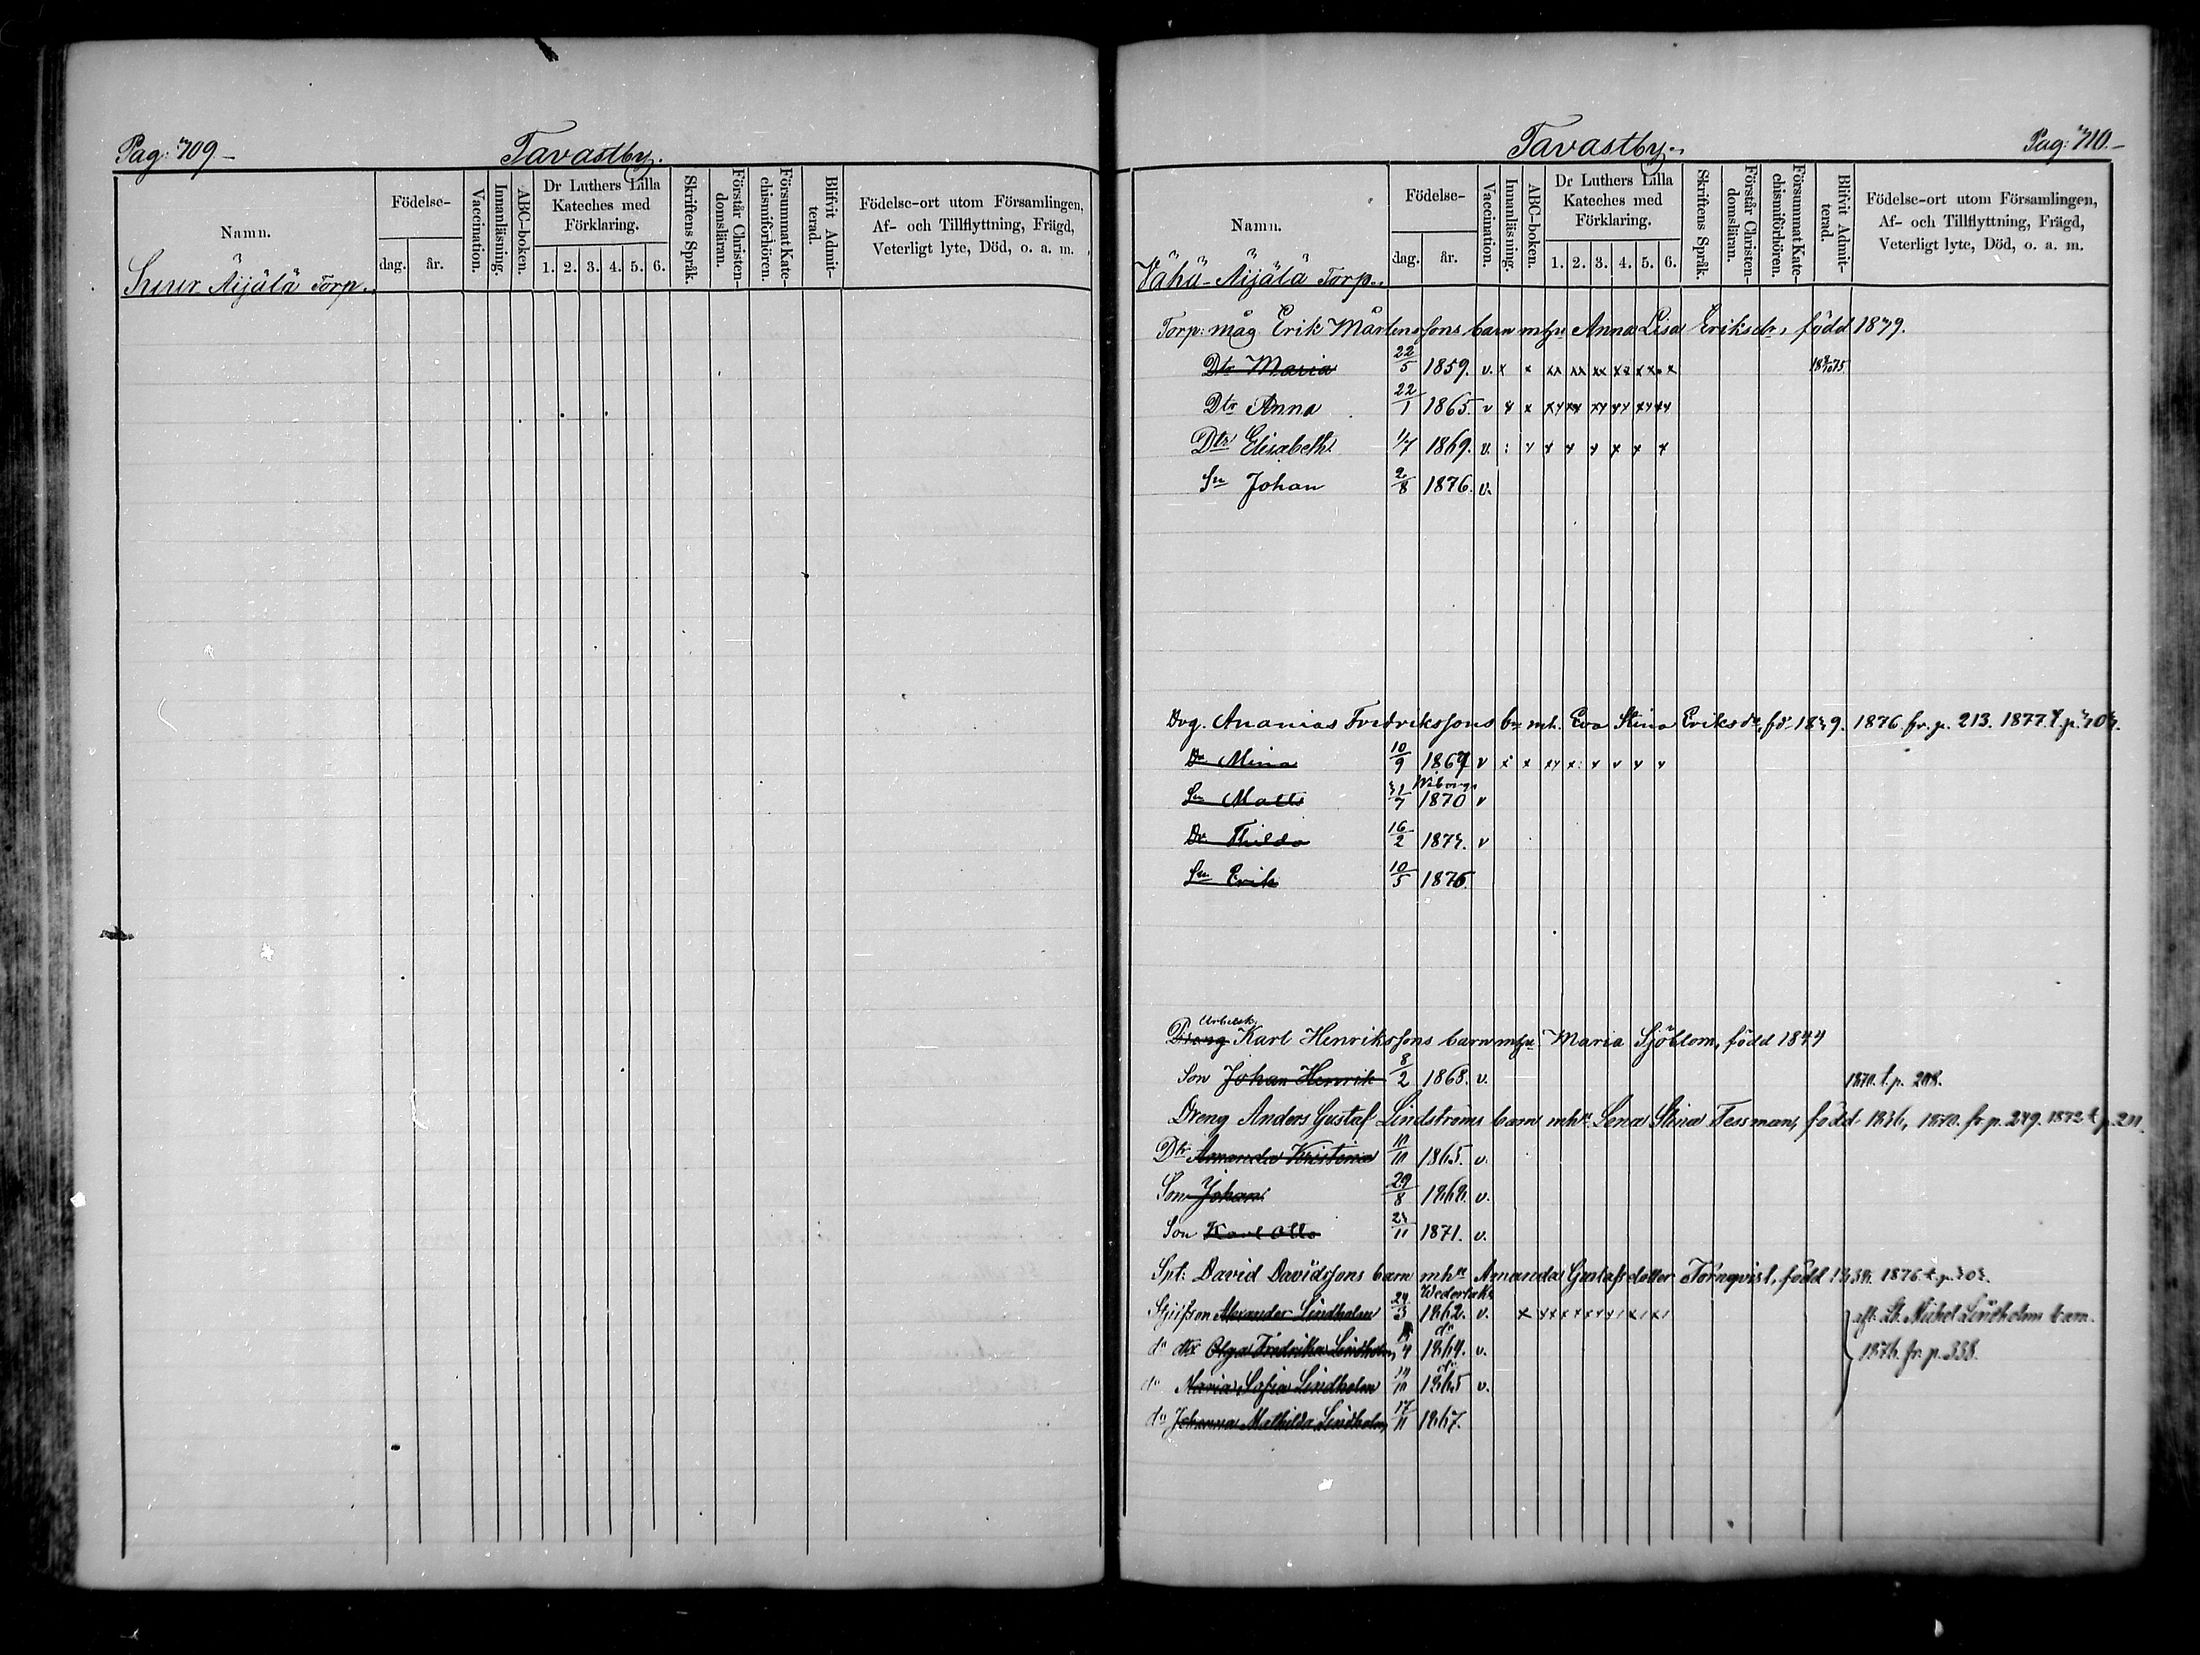 Pag: 709.
Tavastby.
Namn.
Födelse-
dag. år.
Vaccination.
Innanläsning.
ABC-boken.
Dr Luthers Lilla Kateches med Förklaring.
1. 2. 3. 4. 5. 6.
Skriftens Språk.
Förstår Christendomsläran.
Försummat Katechismiförhören.
Blifvit Admitterad.
Födelse-ort utom Församlingen,
Af- och Tillflyttning, Frägd,
Veterligt lyte, Död, o. a. m.
Suur Äijälä Torp.
Tavastby.
Pag: 710.
Namn.
Födelse-
dag. år.
Vaccination.
Innanläsning.
ABC-boken.
Dr Luthers Lilla Kateches med Förklaring.
1. 2. 3. 4. 5. 6.
Skriftens Språk.
Förstår Christendomsläran.
Försummat Katechismiförhören.
Blifvit Admitterad.
Födelse-ort utom Församlingen,
Af- och Tillflyttning, Frägd,
Veterligt lyte, Död, o. a. m.
Vähä-Äijälä Torp.
Torp: måg Erik Mårtenssons barn mhu Anna Lisa Eriksdr, född
Dtr Maria 22/5 1859. v. x x xx xx xx xx xx x
Dtr Anna 22/1 1865. v x x xx xx xx xx xx xx
Dtr Elisabeth 1/7 1869. v. : x x x x x x x
Sn Johan 2/8 1876. v.
Drg. Ananias Fredrikssons bn mh. Eva Stina Eriksdr, fd 1839. 1876 fr. p. 213. 1877. t. p.
Dr Mina 10/9 1867 v x x xx x. v v v v
Wiborg
Sn Matts 31/7 1870 v
Dr Thilda 16/2 1873. v
Sn Erik 10/5 1876
Arbetsk.
Dreng Karl Henrikssons barn mhu Maria Sjöblom, född 1844
Son Johan Henrik 8/2 1868. v. 1870. t. p. 208.
Dreng Anders Gustaf Lindströms barn mhu Lena Stina Tessman, född 1836, 1870. fr. p. 249. 1872 t. p. 211.
Dtr Amanda Kristina 10/11 1865. v.
Son Johan 29/8 1868. v.
Son Karl Otto 23/11 1871. v.
Spt: David Davidssons barn mhu Amanda Gustafsdotter Törnqvist, född 1876 t. p. 303.
Wederlaks
Styfson Alexander Lindholm 24/3 1862. v. x xx x x x x x x x aft. Sk. Michel Lindholm barn.
do
do dtr Olga Fredrika Lindholm 4 1864. v. 1876. fr. p. 338.
do
do Maria Sofia Lindholm 14/10 1865 v.
do Johanna Mathilda Lindholm 17/11 1867.